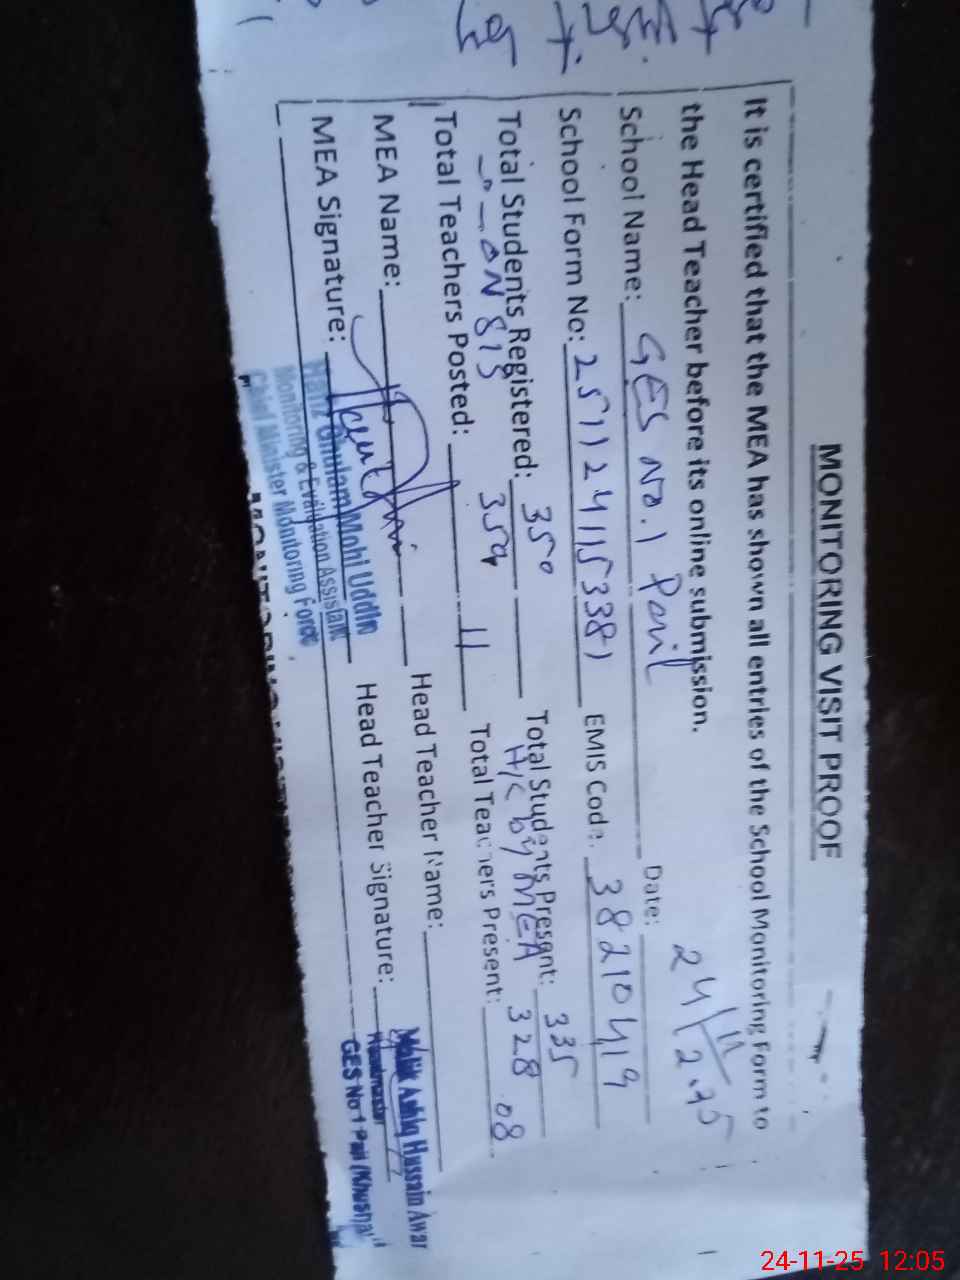 MONITORING VISIT PROOF
It is certified that the MEA has shown all entries of the School Monitoring Form to
the Head Teacher before its online submission.
School Name: GES No. 1 Pail Date: 24/11/2025
School Form No: 2511241153381 EMIS Code: 38210419
Total Students Registered: 350 Total Students Present: 335
ON SIS 359 H/C by MEA 328
Total Teachers Posted: 11 Total Teachers Present: 08
MEA Name: Head Teacher Name:
MEA Signature: Head Teacher Signature:
Hafiz Ghulam Mohi Uddin
Monitoring & Evaluation Assistant
Chief Minister Monitoring Force
Malik Ashiq Hussain Awan
Headmaster
GES No 1 Pail (Khushab)
24-11-25 12:05